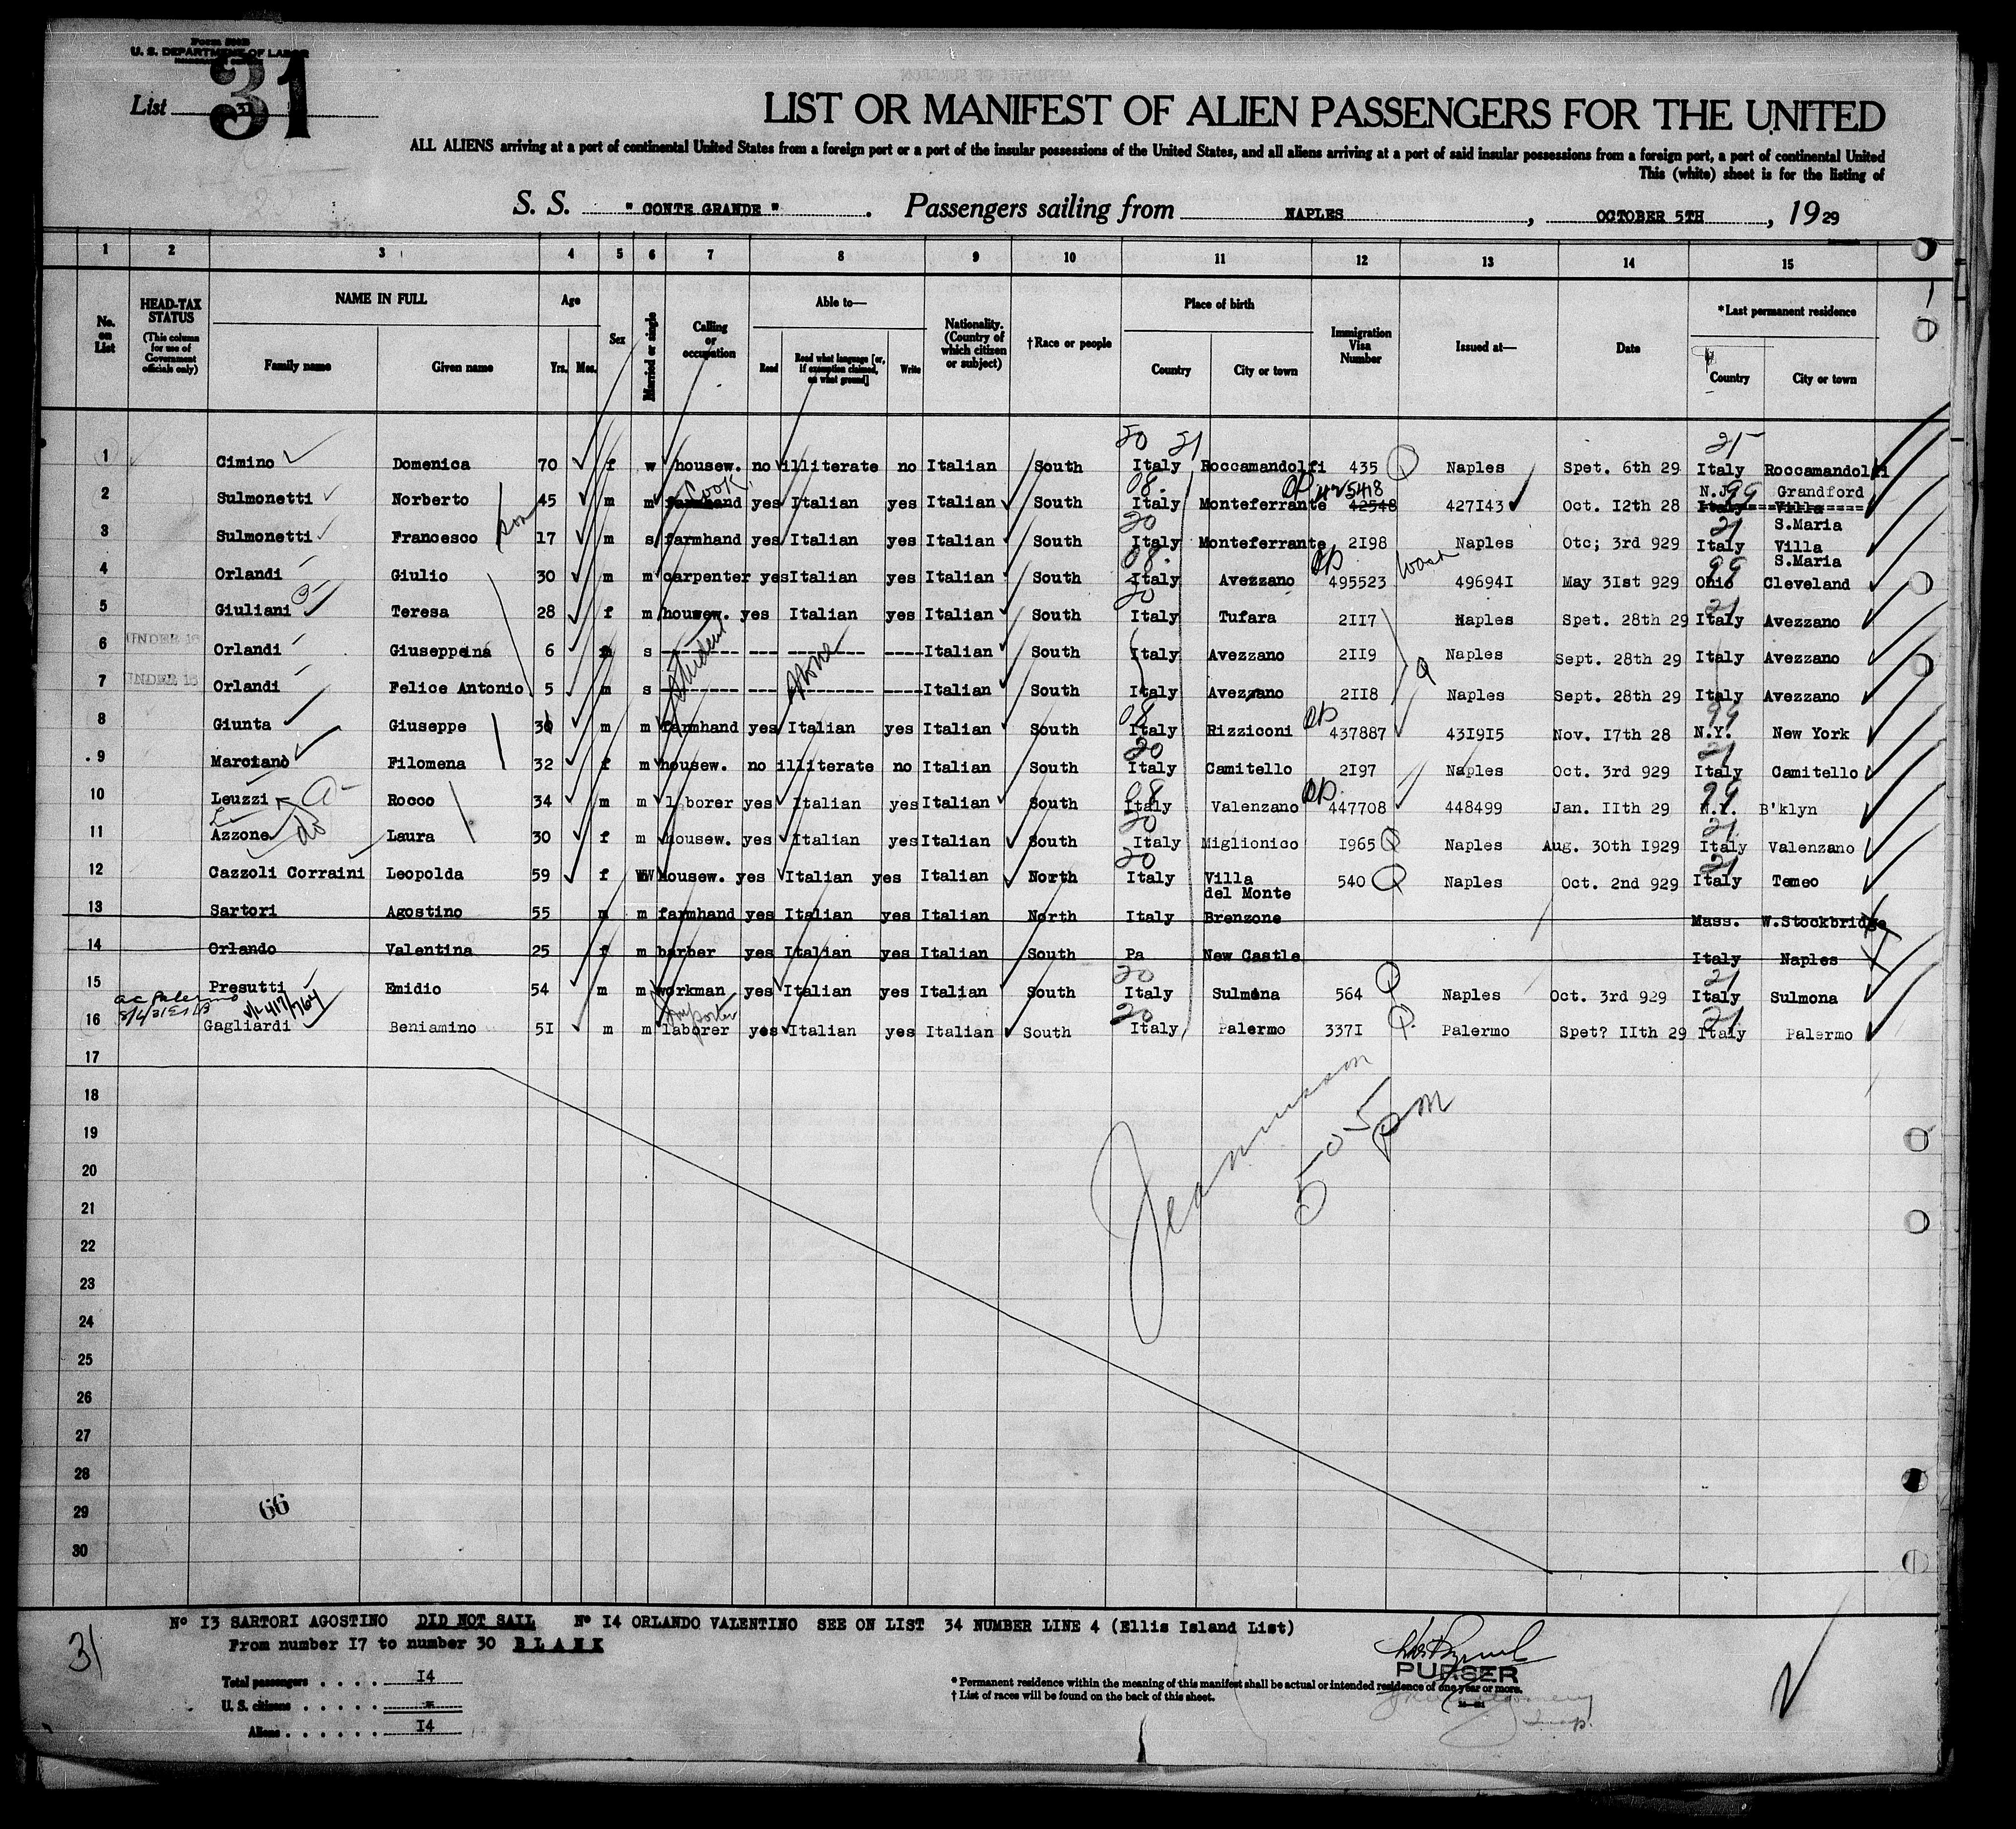 Form 500B
U. S. DEPARTMENT OF LABOR
List 31
31
LIST OR MANIFEST OF ALIEN PASSENGERS FOR THE UNITED
ALL ALIENS arriving at a port of continental United States from a foreign port or a port of the insular possessions of the United States, and all aliens arriving at a port of said insular possessions from a foreign port, a port of continental United
This (white) sheet is for the listing of
S. S. " CONTE GRANDE " . Passengers sailing from NAPLES , OCTOBER 5TH , 1929
1 2 3 4 5 6 7 8 9 10 11 12 13 14 15
No. on List
HEAD-TAX STATUS (This column for use of Government officials only)
NAME IN FULL Family name Given name
Age Yrs. Mos.
Sex
Married or single
Calling or occupation
Able to— Read Read what language [or, if exemption claimed, on what ground] Write
Nationality. (Country of which citizen or subject)
†Race or people
Place of birth Country City or town
Immigration Visa Number
Issued at—
Date
*Last permanent residence Country City or town
20 21 25
1 Cimino Domenica 70 f w housew. no illiterate no Italian South Italy Roccamandolfi 435 Q Naples Spet. 6th 29 Italy Roccamandolfi
cook 08. 425418 N.J. 99 Grandford
2 Sulmonetti Norberto 45 m m farmhand yes Italian yes Italian South Italy Monteferrante 42548 427143 Oct. I2th 28 Italy Villa
son 20 21 S.Maria
3 Sulmonetti Francesco 17 m s farmhand yes Italian yes Italian South Italy Monteferrante 2I98 Naples Otc; 3rd 929 Italy Villa
S.Maria
08. 99
4 Orlandi Giulio 30 m m carpenter yes Italian yes Italian South Italy Avezzano 495523 49694I May 3Ist 929 Ohio Cleveland
20 21
5 Giuliani Teresa 28 f m housew. yes Italian yes Italian South Italy Tufara 2II7 Naples Spet. 28th 29 Italy Avezzano
UNDER 16
6 Orlandi Giuseppina 6 s -------- --- -------- ---- Italian South Italy Avezzano 2II9 Naples Sept. 28th 29 Italy Avezzano
Student None
UNDER 16
7 Orlandi Felice Antonio 5 m s -------- --- --------- ---- Italian South Italy Avezzano 2II8 Naples Sept. 28th 29 Italy Avezzano
08 99
8 Giunta Giuseppe m m farmhand yes Italian yes Italian South Italy Rizziconi 437887 43I9I5 Nov. I7th 28 N.Y. New York
20 21
9 Marcianò Filomena 32 f m housew. no illiterate no Italian South Italy Camitello 2I97 Naples Oct. 3rd 929 Italy Camitello
08 99
10 Leuzzi Rocco 34 m m laborer yes Italian yes Italian South Italy Valenzano 447708 448499 Jan. IIth 29 N.Y. B'klyn
20 21
11 Azzone Laura 30 f m housew. yes Italian yes Italian South Italy Miglionico I965 Q Naples Aug. 30th I929 Italy Valenzano
do
20 21
12 Cazzoli Corraini Leopolda 59 f W housew. yes Italian yes Italian North Italy Villa del Monte 540 Q Naples Oct. 2nd 929 Italy Temeo
13 Sartori Agostino 55 m m farmhand yes Italian yes Italian North Italy Brenzone Mass. W.Stockbridge
14 Orlando Valentina 25 f m barber yes Italian yes Italian South Pa New Castle Italy Naples
20 21
15 Presutti Emidio 54 m m workman yes Italian yes Italian South Italy Sulmona 564 Q Naples Oct. 3rd 929 Italy Sulmona
Importer 20 21
16 Gagliardi Beniamino 5I m m laborer yes Italian yes Italian South Italy Palermo 337I Q Palermo Spet? IIth 29 Italy Palermo
17
18
19
505 pm
20
21
22
23
24
25
26
27
28
29 66
30
Nº I3 SARTORI AGOSTINO DID NOT SAIL Nº I4 ORLANDO VALENTINO SEE ON LIST 34 NUMBER LINE 4 (Ellis Island List)
31 From number I7 to number 30 BLANK
Total passengers . . . . I4
U. S. citizens . . . . . =
Aliens . . . . . . I4
PURSER
* Permanent residence within the meaning of this manifest shall be actual or intended residence of one year or more.
† List of races will be found on the back of this sheet.